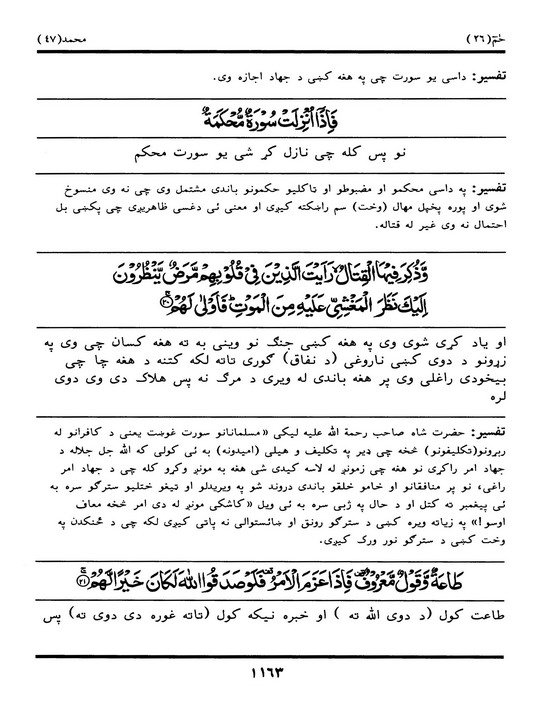 حٰمٓ(۲۶) محمد(۴۷)
تفسیر: داسی یو سورت چی په هغه کښی د جهاد اجازه وی.
فَاِذَآ اُنْزِلَتْ سُوْرَةٌ مُّحْكَمَةٌ
نو پس کله چی نازل کړ شی یو سورت محکم
تفسیر: په داسی محکمو او مضبوطو او تاکلیو حکمونو باندی مشتمل وی چی نه وی منسوخ
شوی او پوره پخپل مهال (وخت) سم راښکته کیږی او معنی ئی دغسی ظاهریږی چی پکښی بل
احتمال نه وی غیر له قتاله.
وَّذُكِرَ فِيْهَا الْقِتَالُ رَاَيْتَ الَّذِيْنَ فِيْ قُلُوْبِهِمْ مَّرَضٌ يَّنْظُرُوْنَ
اِلَيْكَ نَظَرَ الْمَغْشِيِّ عَلَيْهِ مِنَ الْمَوْتِ ؕ فَاَوْلٰى لَهُمْ ۚ﴿۲۰﴾
او یاد کړی شوی وی په هغه کښی جنګ نو وینی به ته هغه کسان چی وی په
زړونو د دوی کښی ناروغی (د نفاق) ګوری تاته لکه کتنه د هغه چا چی
بیخودی راغلی وی پر هغه باندی له ویری د مرګ نه پس هلاک دی وی دوی
لره
تفسیر: حضرت شاه صاحب رحمة الله علیه لیکی «مسلمانانو سورت غوښت یعنی د کافرانو له
ربړونو(تکلیفونو) څخه چی ډیر په تکلیف و هیلی (امیدونه) به ئی کولی که الله جل جلاله د
جهاد امر راکړی نو هغه چی زمونږ له لاسه کیدی شی هغه به مونږ وکړو کله چی د جهاد امر
راغی، نو پر منافقانو او خامو خلقو باندی دروند شو په ویریدلو او تیغو ختلیو سترګو سره به
ئی پیغمبر ته کتل او د حال په ژبی سره به ئی ویل «کاشکی مونږ له دی امر څخه معاف
اوسو!» په زیاته ویره کښی د سترګو رونق او ښائستوالی نه پاتی کیږی لکه چی د ځنکدن په
وخت کښی د سترګو نور ورک کیږی.
طَاعَةٌ وَّقَوْلٌ مَّعْرُوْفٌ فَاِذَا عَزَمَ الْاَمْرُ فَلَوْ صَدَقُوا اللّٰهَ لَكَانَ خَيْرًا لَّهُمْ ۚ﴿۲۱﴾
طاعت کول (د دوی الله ته ) او خبره نیکه کول (تاته غوره دی دوی ته) پس
۱۱۶۳